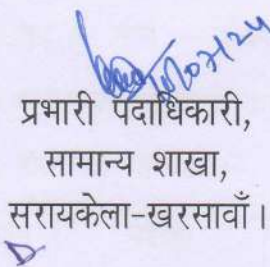 प्रभारी पदाधिकारी,
सामान्य शाखा,
सरायकेला-खरसावाँ।